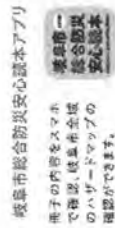 岐阜市総合防災安心読本アプリ
冊子の内容をスマホ
で確認、岐阜市全域
のハザードマップの
確認ができます。
岐阜市
総合防災
安心読本